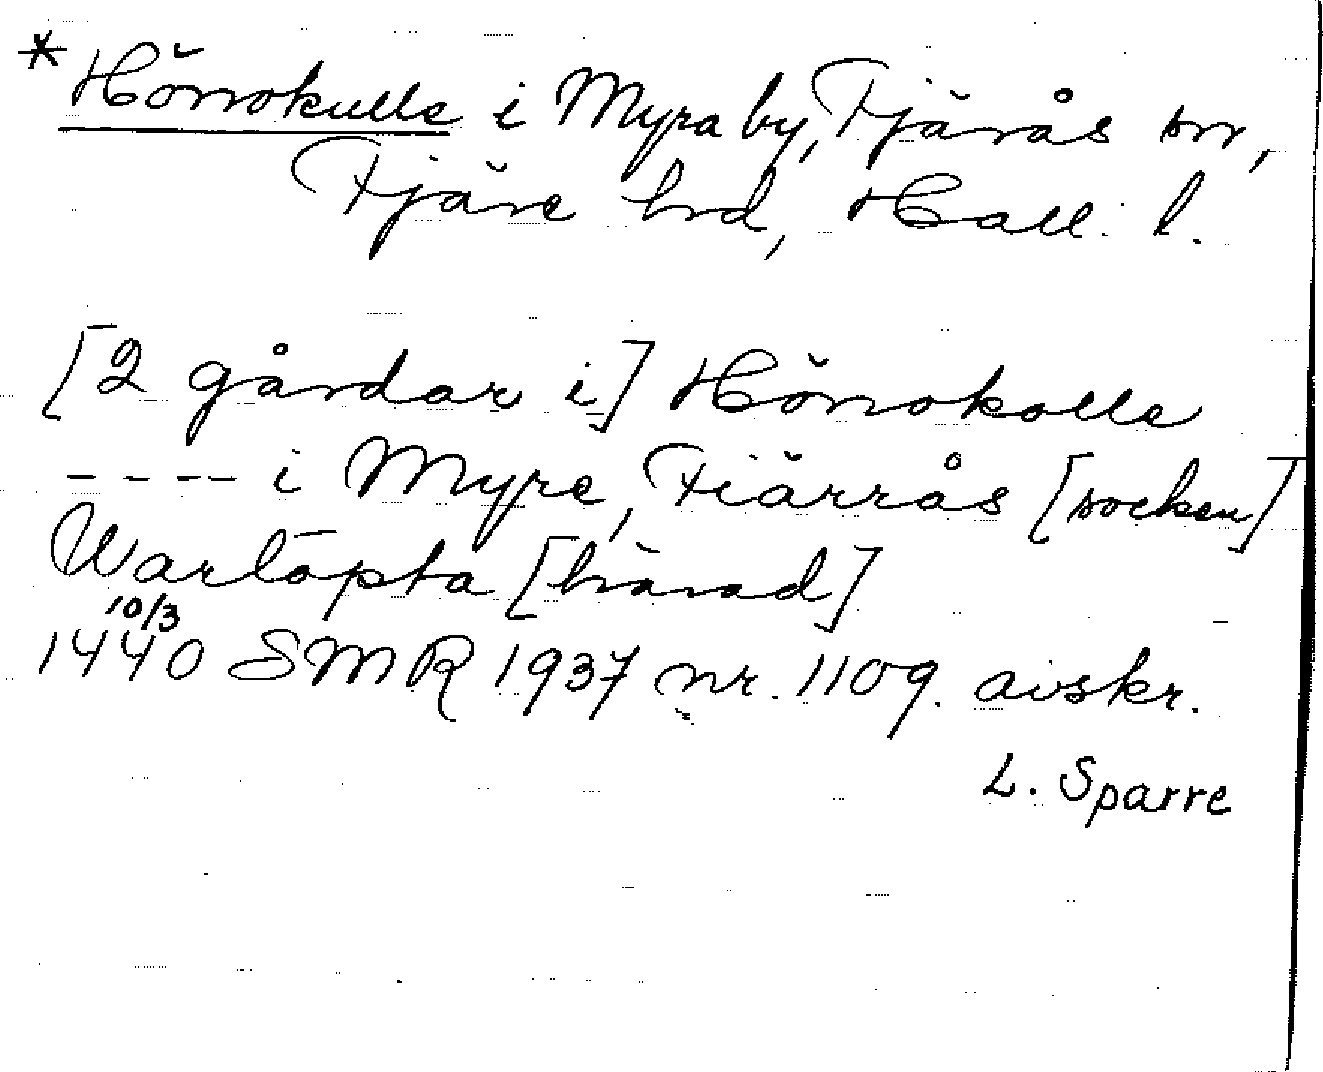 *Hörrokulle i Myra by, Fjärås sn,
Fjäre hd, Hall. l.
[2 gårdar i] Hörrokolle
---- i Myre, Fiärrås [socken]
Warlöpta [härad]
10/3
1440 SMR 1937 nr. 1109. avskr.
L. Sparre